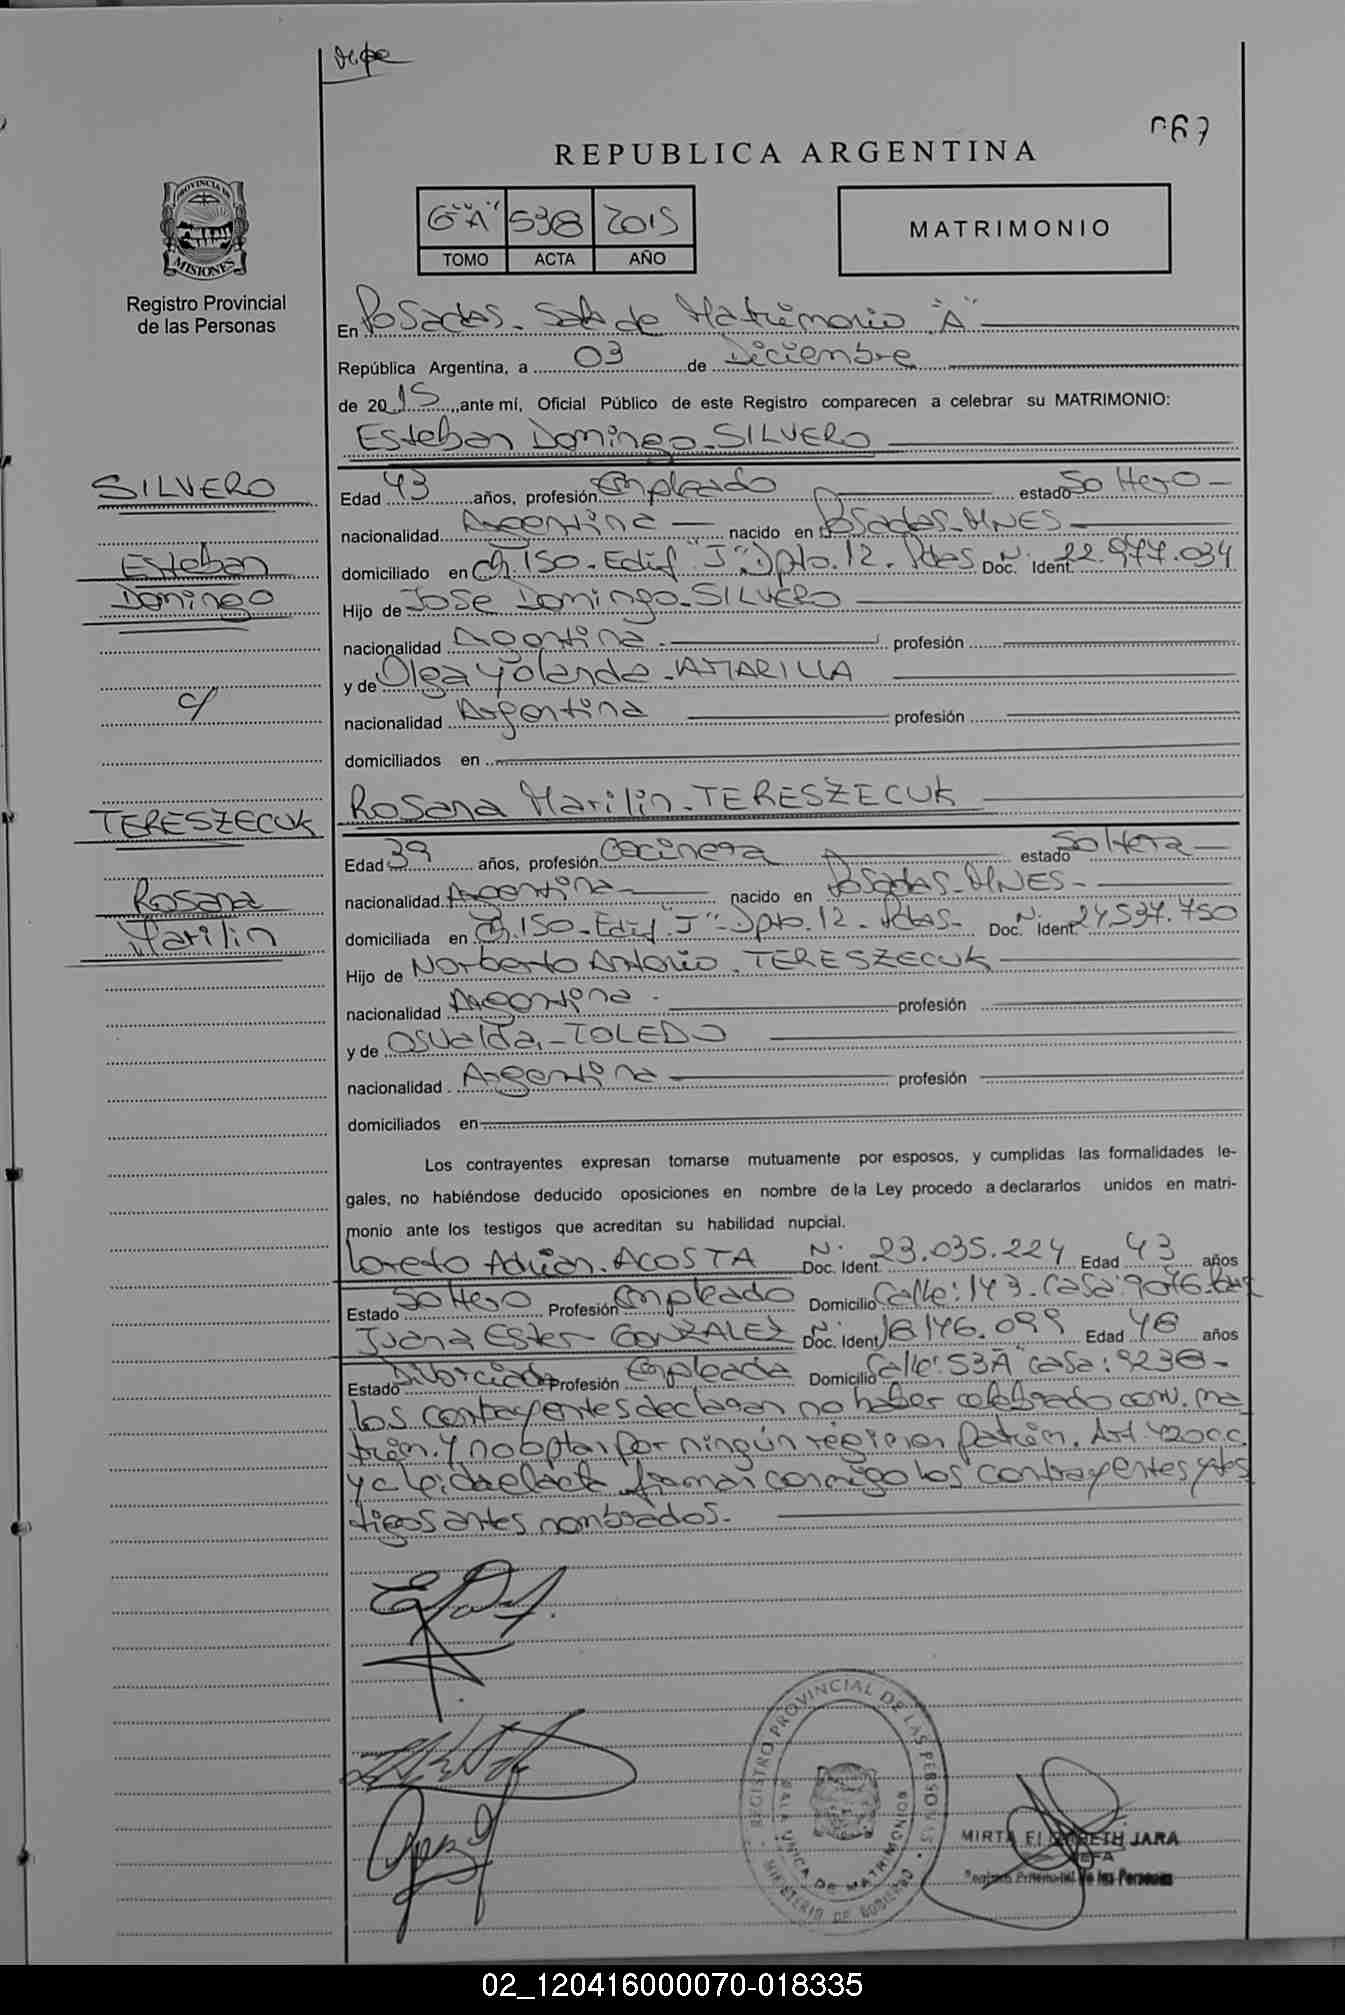 067
REPUBLICA ARGENTINA
PROVINCIA DE
MISIONES
Registro Provincial
de las Personas
6 "A" 538 2015
TOMO ACTA AÑO
MATRIMONIO
En Posadas. Sala de Matrimonio "A"
República Argentina, a 03 de Diciembre
de 2015, ante mí, Oficial Público de este Registro comparecen a celebrar su MATRIMONIO:
Esteban Domingo SILVERO
SILVERO
Esteban
Domingo
c/
TERESZECUK
Rosana
Marilin
Edad 43 años, profesión Empleado estado Soltero
nacionalidad Argentina nacido en Posadas-MNES
domiciliado en Ch. 150. Edif. "J". Dpto. 12. Pdas Doc. N: Ident. 22.977.034
Hijo de Jose Domingo SILVERO
nacionalidad Argentina profesión
y de Olga Yolanda AMARILLA
nacionalidad Argentina profesión
domiciliados en
Rosana Marilin TERESZECUK
Edad 39 años, profesión Cocinera estado Soltera
nacionalidad Argentina nacido en Posadas-MNES
domiciliada en Ch. 150. Edif. "J" Dpto. 12. Pdas. Doc. N: Ident. 24.537.750
Hijo de Norberto Antonio TERESZECUK
nacionalidad Argentina profesión
y de Osvalda TOLEDO
nacionalidad Argentina profesión
domiciliados en
Los contrayentes expresan tomarse mutuamente por esposos, y cumplidas las formalidades le-
gales, no habiéndose deducido oposiciones en nombre de la Ley procedo a declararlos unidos en matri-
monio ante los testigos que acreditan su habilidad nupcial.
Loreto Adrian ACOSTA Doc. N: Ident. 23.035.224 Edad 43 años
Estado Soltero Profesión Empleado Domicilio Calle: 143. Casa: 9046.
Juana Ester GONZALEZ Doc. N: Ident. 18.146.099 Edad 48 años
Estado Divorciada Profesión Empleada Domicilio Calle: 53A casa: 9238
Los contrayentes declaran no haber celebrado conv. ma
trim. y no optar por ningún régimen patrim. Art 420 c.c.
y c. Leida el acta firman conmigo los contrayentes y tes
tigos antes nombrados.
REGISTRO PROVINCIAL DE LAS PERSONAS
SALA UNICA DE MATRIMONIOS
MINISTERIO DE GOBIERNO
MIRTA ELIZABETH JARA
JEFA
Registro Provincial de las Personas
02_120416000070-018335